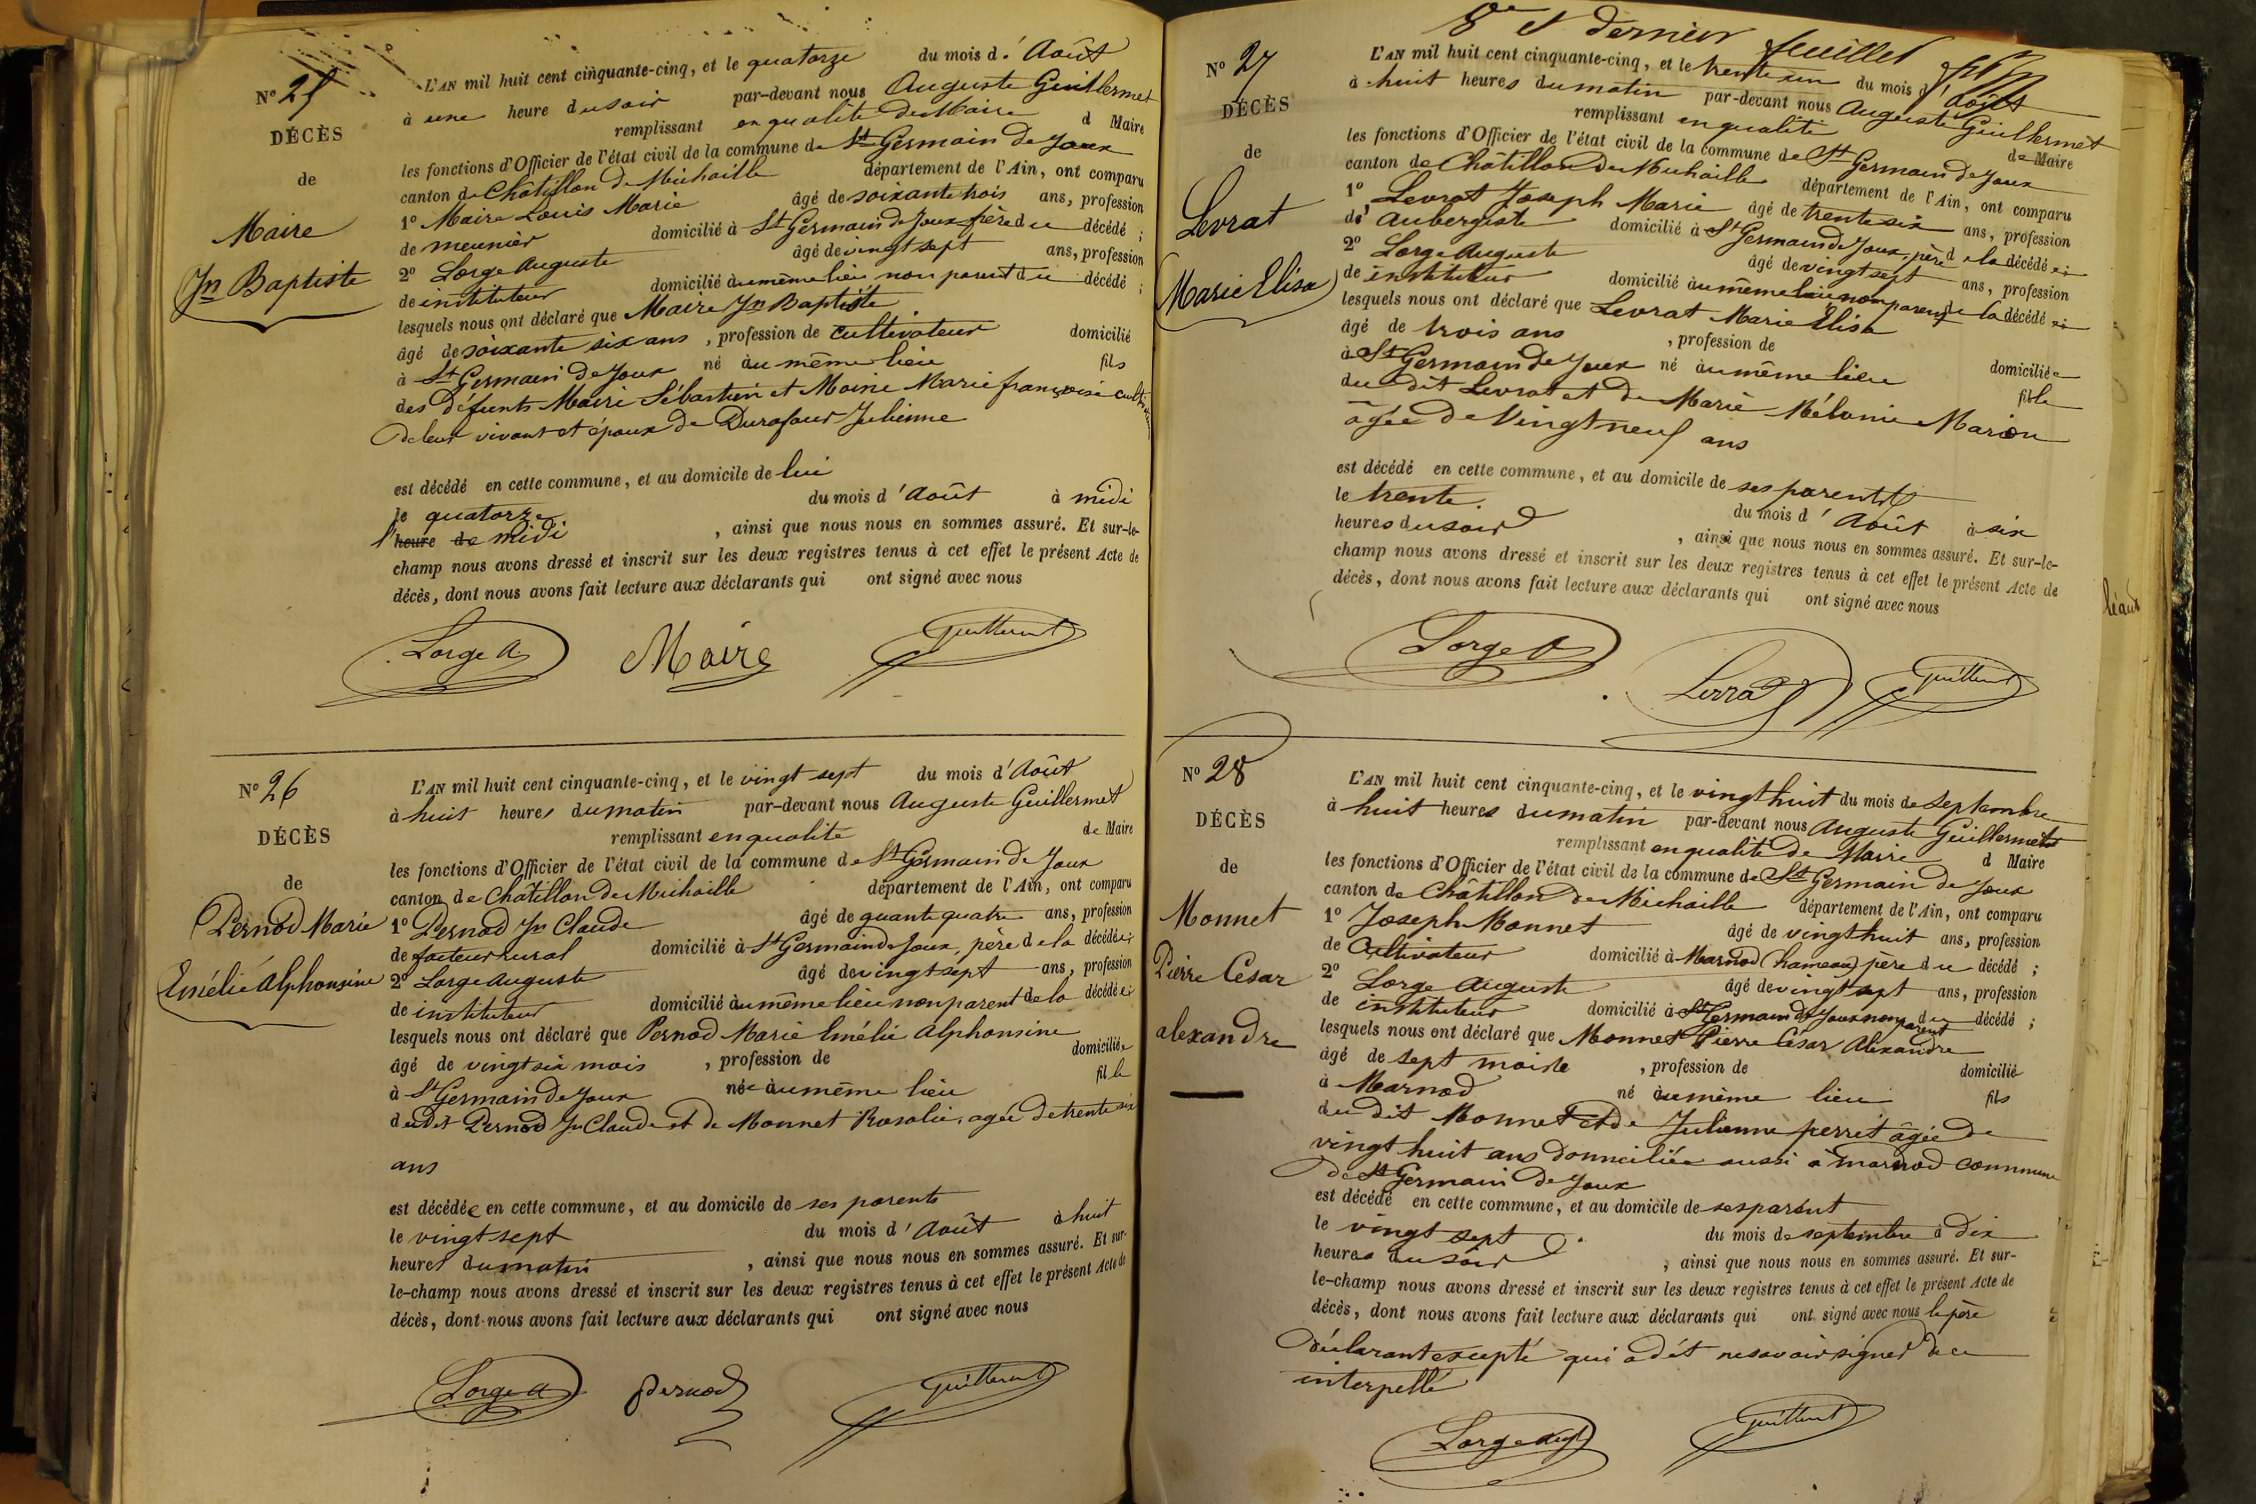 N° 25
DÉCÈS
de
Maire
Jn Baptiste
L'AN mil huit cent cinquante-cinq, et le quatorze du mois d'Août
à une heure du soir par-devant nous Auguste Guillermet
remplissant en qualité de Maire d Maire
les fonctions d'Officier de l'état civil de la commune de St Germain de Joux
canton de Châtillon de Michaille département de l'Ain, ont comparu
1° Maire Louis Marie âgé de soixante trois ans, profession
de meunier domicilié à St Germain de Joux frère du décédé ;
2° Lorge Auguste âgé de vingt sept ans, profession
de instituteur domicilié au même lieu non parent du décédé ;
lesquels nous ont déclaré que Maire Jn Baptiste
âgé de soixante six ans , profession de cultivateur domicilié
à St Germain de Joux né au même lieu fils
des défunts Maire Sébastien et Moine Marie françoise
de leur vivant et époux de Durafour Julienne
est décédé en cette commune, et au domicile de lui
le quatorze du mois d'Août à midi
l'heure de midi , ainsi que nous nous en sommes assuré. Et sur-le-
champ nous avons dressé et inscrit sur les deux registres tenus à cet effet le présent Acte de
décès, dont nous avons fait lecture aux déclarants qui ont signé avec nous
Lorge A Maire Guillermet
N° 26
DÉCÈS
de
Pernod Marie
Emélie Alphonsine
L'AN mil huit cent cinquante-cinq, et le vingt sept du mois d'Août
à huit heures du matin par-devant nous Auguste Guillermet
remplissant en qualité de Maire
les fonctions d'Officier de l'état civil de la commune de St Germain de Joux
canton de Châtillon de Michaille département de l'Ain, ont comparu
1° Pernod Jn Claude âgé de quante quatre ans, profession
de facteur rural domicilié à St Germain de Joux, père de la décédée ;
2° Lorge Auguste âgé de vingt sept ans, profession
de instituteur domicilié au même lieu non parent de la décédée ;
lesquels nous ont déclaré que Pernod Marie Emélie Alphonsine
âgé de vingt six mois , profession de domiciliée
à St Germain de Joux née au même lieu fille
du dit Pernod Jn Claude et de Monnet Rosalie, agée de trente six
ans
est décédée en cette commune, et au domicile de ses parents
le vingt sept du mois d'Août à huit
heures du matin , ainsi que nous nous en sommes assuré. Et sur-
le-champ nous avons dressé et inscrit sur les deux registres tenus à cet effet le présent Acte de
décès, dont nous avons fait lecture aux déclarants qui ont signé avec nous
Lorge A Pernod Guillermet
8e et dernier feuillet
N° 27
DÉCÈS
de
Levrat
Marie Elisa
L'AN mil huit cent cinquante-cinq, et le trente un du mois d'Août
à huit heures du matin par-devant nous Auguste Guillermet
remplissant en qualité de Maire
les fonctions d'Officier de l'état civil de la commune de St Germain de Joux
canton de Châtillon de Michaille département de l'Ain, ont comparu
1° Levrat Joseph Marie âgé de trente six ans, profession
d' Aubergiste domicilié à St Germain de Joux, père de la décédée ;
2° Lorge Auguste âgé de vingt sept ans, profession
de instituteur domicilié au même lieu non parent de la décédée ;
lesquels nous ont déclaré que Levrat Marie Elisa
âgé de trois ans , profession de domiciliée
à St Germain de Joux né au même lieu fille
du dit Levrat et de Marie Mélanie Marion
âgée de Vingt neuf ans
est décédé en cette commune, et au domicile de ses parents
le trente du mois d'Août à six
heures du soir , ainsi que nous nous en sommes assuré. Et sur-le-
champ nous avons dressé et inscrit sur les deux registres tenus à cet effet le présent Acte de
décès, dont nous avons fait lecture aux déclarants qui ont signé avec nous
Lorge A Levrat Guillermet
N° 28
DÉCÈS
de
Monnet
Pierre César
alexandre
L'AN mil huit cent cinquante-cinq, et le vingt huit du mois de septembre
à huit heures du matin par-devant nous Auguste Guillermet
remplissant en qualité de Maire d Maire
les fonctions d'Officier de l'état civil de la commune de St Germain de Joux
canton de Châtillon de Michaille département de l'Ain, ont comparu
1° Joseph Monnet âgé de vingt huit ans, profession
de Cultivateur domicilié à Marnod (hameau) père du décédé ;
2° Lorge Auguste âgé de vingt sept ans, profession
de instituteur domicilié à St Germain de Joux non parent du décédé ;
lesquels nous ont déclaré que Monnet Pierre César Alexandre
âgé de sept mois , profession de domicilié
à Marnod né au même lieu fils
du dit Monnet et de Julienne perret âgée de
vingt huit ans domiciliée aussi à marnod commune
de St Germain de Joux
est décédé en cette commune, et au domicile de ses parent
le vingt sept du mois de septembre à dix
heures du soir , ainsi que nous nous en sommes assuré. Et sur-
le-champ nous avons dressé et inscrit sur les deux registres tenus à cet effet le présent Acte de
décès, dont nous avons fait lecture aux déclarants qui ont signé avec nous le père
déclarant excepté qui a dit ne savoir signer de ce
interpellé
Lorge Augte Guillermet